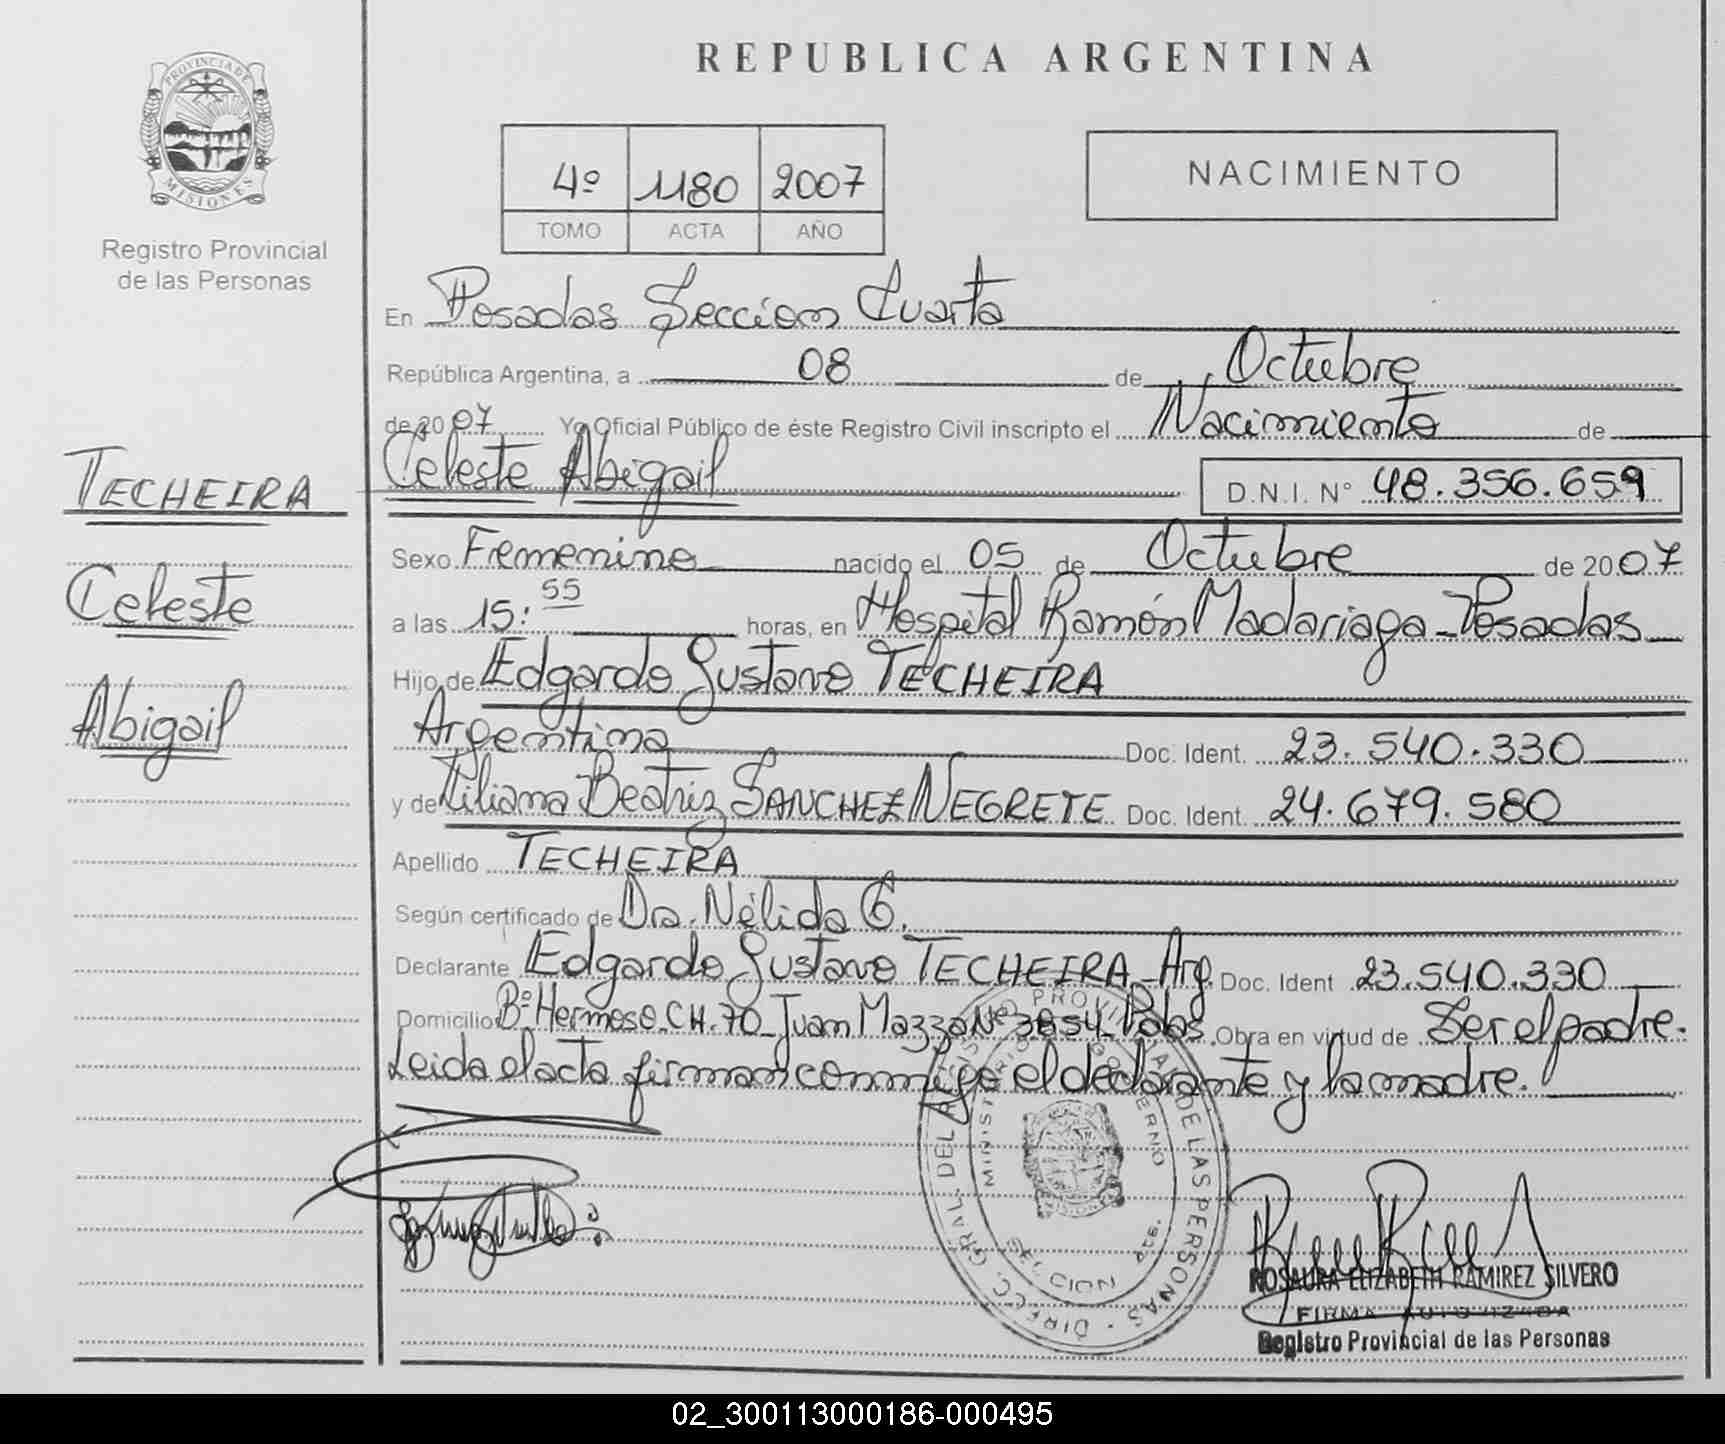 PROVINCIA DE
MISIONES
Registro Provincial
de las Personas
TECHEIRA
Celeste
Abigail
REPUBLICA ARGENTINA
4º 1180 2007
TOMO ACTA AÑO
NACIMIENTO
En Posadas Sección Cuarta
República Argentina, a 08 de Octubre
de 2007 Yo Oficial Público de éste Registro Civil inscripto el Nacimiento de
Celeste Abigail D.N.I. Nº 48.356.659
Sexo Femenino nacido el 05 de Octubre de 2007
a las 15:55 horas, en Hospital Ramón Madariaga - Posadas
Hijo de Edgardo Gustavo TECHEIRA
Argentina Doc. Ident. 23.540.330
y de Liliana Beatriz SANCHEZ NEGRETE Doc. Ident. 24.679.580
Apellido TECHEIRA
Según certificado de Dra. Nélida G.
Declarante Edgardo Gustavo TECHEIRA - Arg. Doc. Ident 23.540.330
Domicilio Bº Hermoso CH. 70 Juan Mazza Nº 3854 Pdas. Obra en virtud de Ser el padre.
Leida el acta firman conmigo el declarante y la madre.
DIRECC. GRAL. DEL REGISTRO PROVINCIAL DE LAS PERSONAS
MINISTERIO GOBIERNO
ROSAURA ELIZABETH RAMIREZ SILVERO
FIRMA AUTORIZADA
Registro Provincial de las Personas
02_300113000186-000495